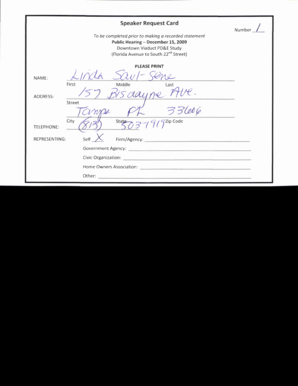 Speaker Request Card
Number 1
To be completed prior to making a recorded statement
Public Hearing – December 15, 2009
Downtown Viaduct PD&E Study
(Florida Avenue to South 22nd Street)
PLEASE PRINT
NAME: Linda Saul-Sena
First Middle Last
ADDRESS: 157 Biscayne Ave.
Street
Tampa FL 33606
City State Zip Code
TELEPHONE: (813)
REPRESENTING: Self X Firm/Agency:
Government Agency:
Civic Organization:
Home Owners Association:
Other: